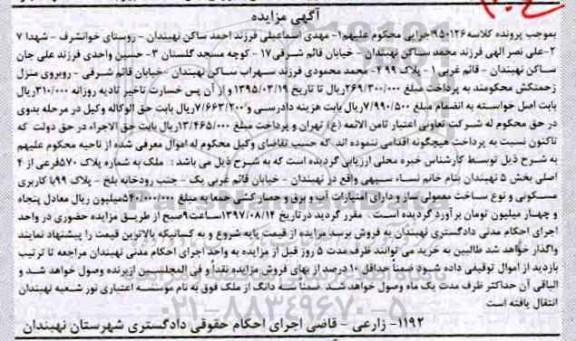 آگهی مزایده
بموجب پرونده کلاسه ۹۵۰۱۲۶اجرایی محکوم علیهم۱- مهدی اسماعیلی فرزند احمد ساکن نهبندان - روستای خوانشرف - شهدا ۷
۲-علی نصر الهی فرزند محمد ساکن نهبندان - خیابان قائم شرقی۱۷ - کوچه مسجد گلستان ۳- حسین واحدی فرزند علی جان
ساکن نهبندان - قائم غربی۱ - پلاک ۹۹ ۲- محمد محمودی فرزند سهراب ساکن نهبندان -خیابان قائم شرقی - روبروی منزل
زحمتکش محکومند به پرداخت مبلغ ۲۶۹/۳۰۰/۰۰۰ریال تا تاریخ ۱۳۹۵/۰۳/۱۹ و از آن پس خسارت تاخیر تادیه روزانه ۳۱۰/۰۰۰ریال
بابت اصل خواسته به انضمام مبلغ ۷/۹۹۰/۵۰۰ریال بابت هزینه دادرسی و۷/۶۶۳/۲۰۰ریال بابت حق الوکاله وکیل در مرحله بدوی
در حق محکوم له شرکت تعاونی اعتبار ثامن الائمه (ع) تهران و پرداخت مبلغ ۱۳/۴۶۵/۰۰۰ریال بابت حق الاجراء در حق دولت که
تاکنون نسبت به پرداخت هیچگونه اقدامی ننموده اند، که حسب تقاضای وکیل محکوم له اموال معرفی شده از ناحیه محکوم علیهم
به شرح ذیل توسط کارشناس خبره محلی ارزیابی گردیده است که به شرح ذیل می باشد : ملک به شماره پلاک ۵۷۰فرعی از ۴
اصلی بخش ۵ نهبندان بنام خانم نساء سپهی واقع در نهبندان - خیابان قائم غربی یک - جنب رودخانه بلخ - پلاک ۹۹با کاربری
مسکونی و نوع ساخت معمولی ساز و دارای امتیازات آب و برق و حصار کشی جمعا به مبلغ ۵۴۰/۰۰۰/۰۰۰میلیون ریال معادل پنجاه
و چهار میلیون تومان برآورد گردیده است . مقرر گردید در تاریخ ۱۳۹۷/۰۸/۱۴ساعت ۹صبح از طریق مزایده حضوری در واحد
اجرای احکام مدنی دادگستری نهبندان به فروش برسد مزایده از قیمت پایه شروع و به کسانیکه بالاترین قیمت را پیشنهاد نمایند
واگذار خواهد شد طالبین به خرید می توانند ظرف مدت ۵ روز قبل از مزایده به واحد اجرای احکام مدنی نهبندان مراجعه تا ترتیب
بازدید از اموال توقیفی داده شود ضمنا حداقل ۱۰ درصد از بهای فروش مزایده نقدا و فی المجلس از برنده وصول خواهد شد و
الباقی آن حداکثر ظرف مدت یک ماه وصول خواهد شد. ضمنا سه دانگ از ملک فوق به نام موسسه اعتباری نور شعبه نهبندان
انتقال یافته است
۱۱۹۲- زارعی - قاضی اجرای احکام حقوقی دادگستری شهرستان نهبندان
۰۲۱-۸۸۳۴۹۶۷۰-۵